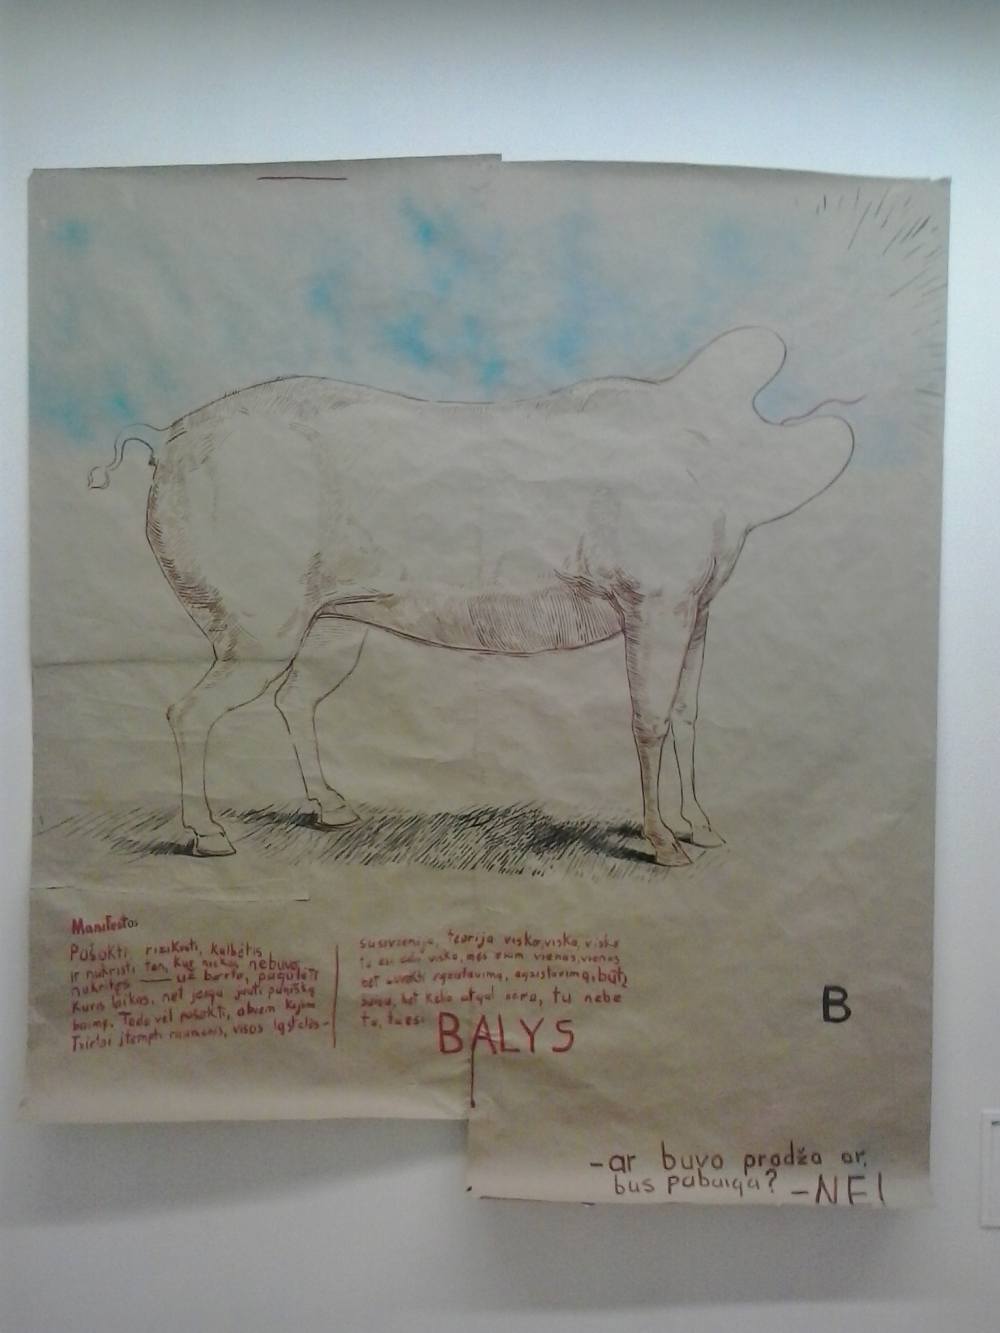 Manifestas
Pašokti, rizikuoti, kalbėtis
ir nukristi ten, kur niekas nebuvo
nukritęs — už borto, pagulėti
kuris laikas, net jeigu jauti
baimę. Tada vėl pašokti, abiem kojom
Tvirtai įtempti raumenis, visos ląstelės-
susivienija, teorija visko, visko, visko
tu esi visko, mes esim vienas, vienas
bet
bet atgal nėra, tu nebe
tu, tu esi
BALYS
B
-ar buvo pradža ar,
bus pabaiga? -NE!